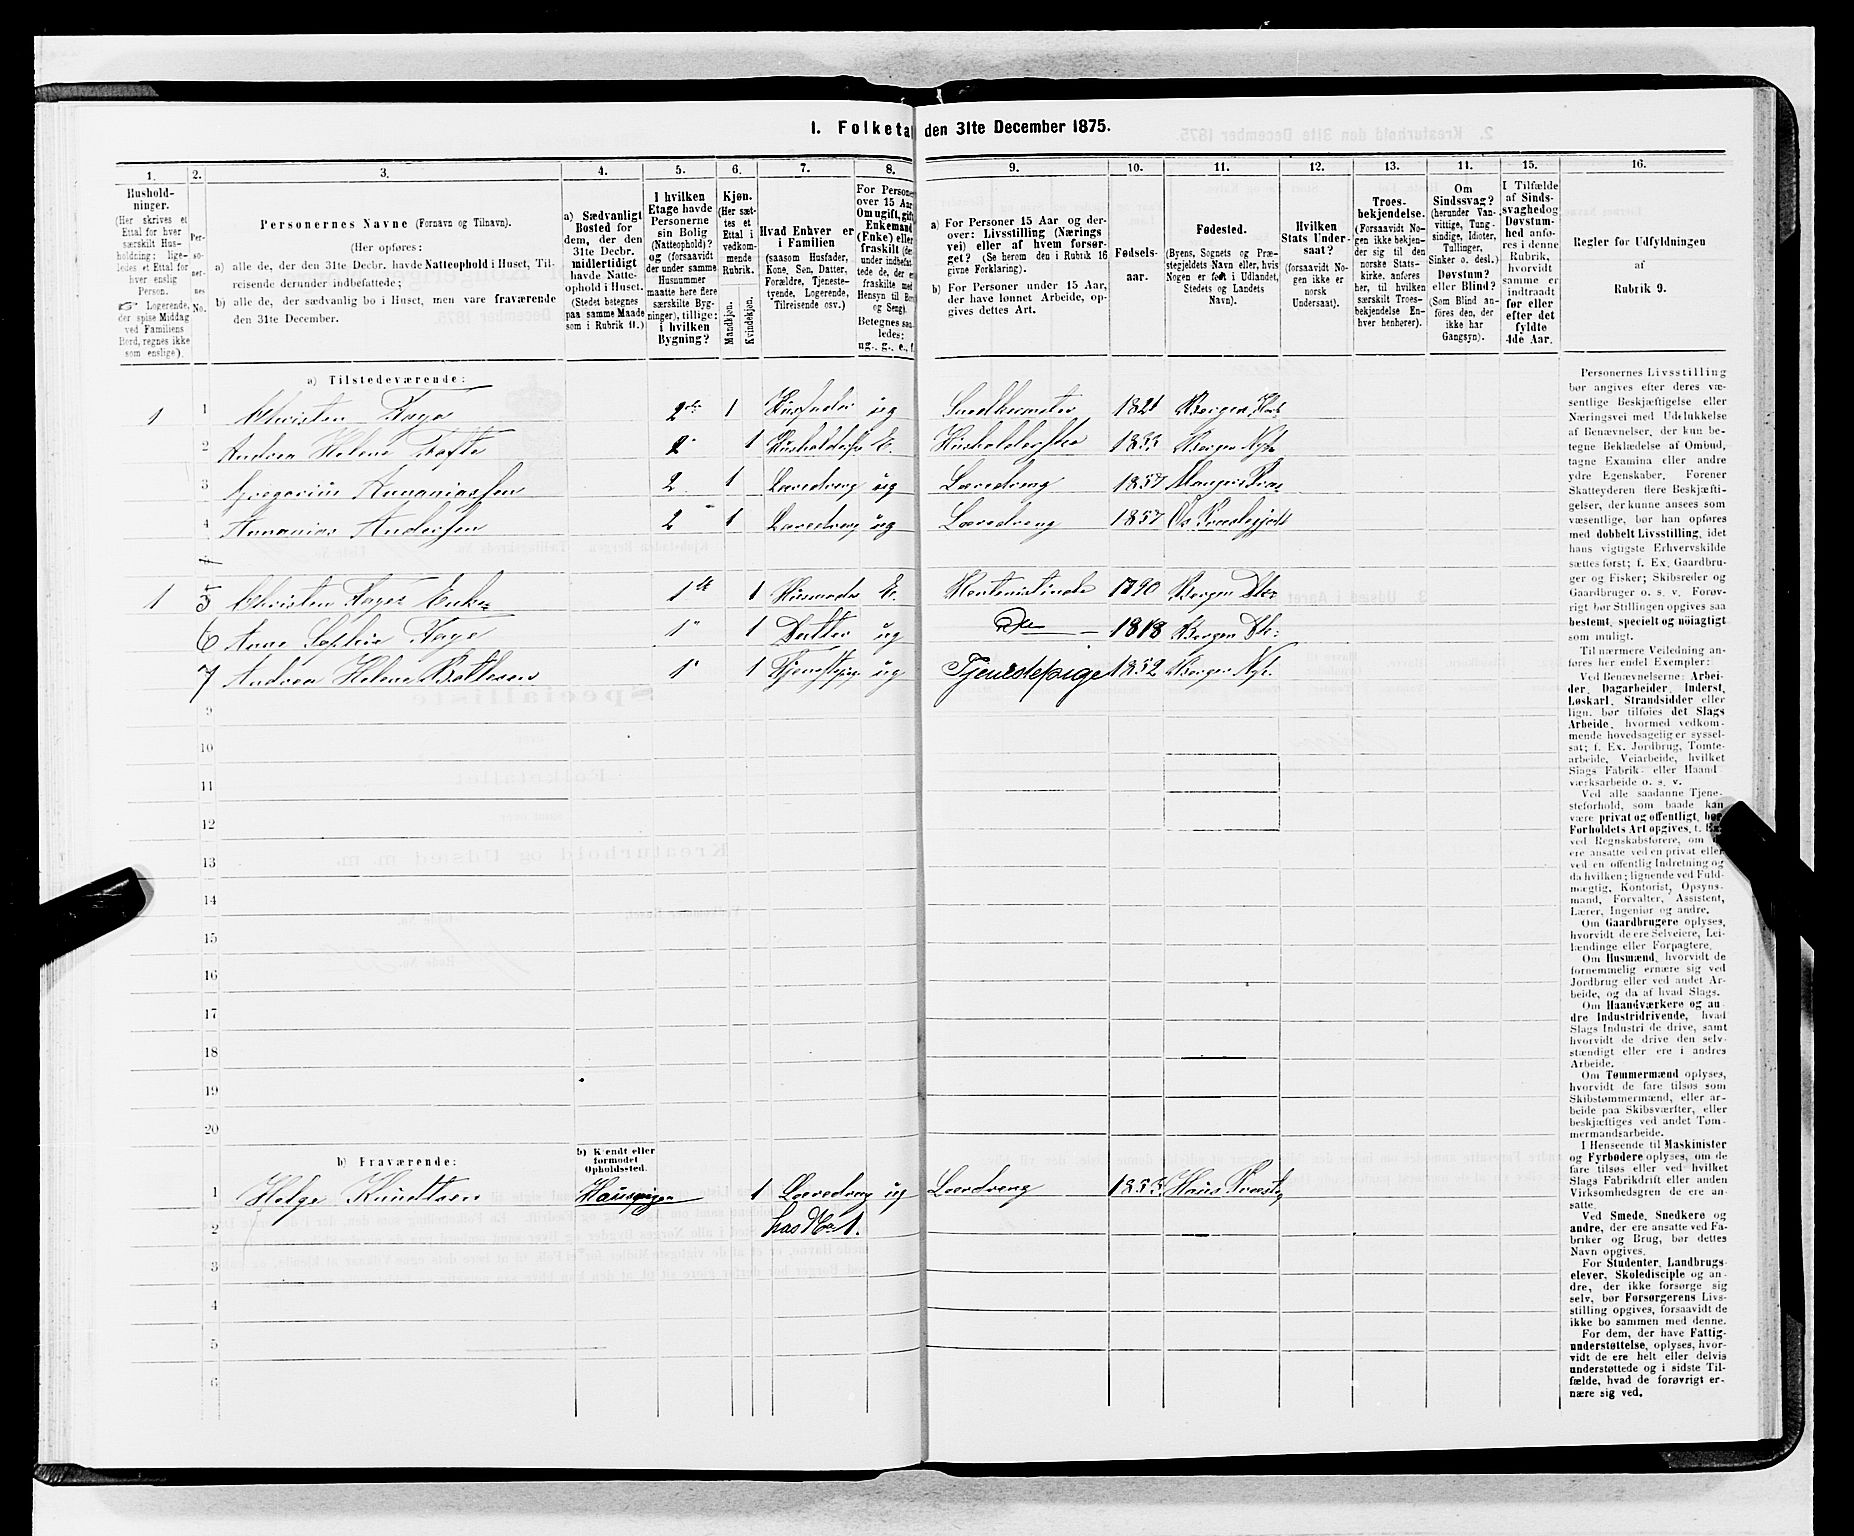 1. Folketal den 31te December 1875.
1.
Hushold-
ninger.
(Her skrives et
Ettal for hver
særskilt Hus-
holdning; lige-
ledes et Ettal for
hver enslig
Person.
Logerende,
der spise Middag
ved Familiens
Bord, regnes ikke
som enslige).
2.
Per-
so-
ner-
nes
No.
3.
Personernes Navne (Fornavn og Tilnavn).
(Her opføres:
a) alle de, der den 31te Decbr. havde Natteophold i Huset, Til-
reisende derunder indbefattede;
b) alle de, der sædvanlig bo i Huset, men vare fraværende
den 31te December.
4.
a) Sædvanligt
Bosted for
dem, der den
31te Decbr.
midlertidigt
havde Natte-
ophold i Huset.
(Stedet betegnes
paa samme Maade
som i Rubrik 11.)
5.
I hvilken
Etage havde
Personerne
sin Bolig
(Natteophold)?
og (forsaavidt
der under samme
Husnummer
maatte høre flere
særskilte Byg-
ninger), tillige:
i hvilken
Bygning?
6.
Kjøn.
(Her sæt-
tes et
Ettal i
vedkom-
mende
Rubrik.
Mandkjøn.
Kvindekjøn.
7.
Hvad Enhver er
i Familien
(saasom Husfader,
Kone, Søn, Datter,
Forældre, Tjeneste-
tyende, Logerende,
Tilreisende osv.)
8.
For Personer
over 15 Aar:
Om ugift, gift,
Enkemand
(Enke) eller
fraskilt (der-
under indbefat-
tede de, der ere
fraskilte med
Hensyn til Bord
og Seng).
Betegnes saa-
ledes:
ug., g., e., f.
9.
a) For Personer 15 Aar og der-
over: Livsstilling (Nærings
vei) eller af hvem forsør-
get? (Se herom den i Rubrik 16
givne Forklaring).
b) For Personer under 15 Aar,
der have lønnet Arbeide, op-
gives dettes Art.
10.
Fødsels-
aar.
11.
Fødested.
(Byens, Sognets og Præ-
stegjeldets Navn eller, hvis
Nogen er født i Udlandet,
Stedets og Landets
Navn).
12.
Hvilken
Stats Under-
saat?
(forsaavidt No-
gen ikke er
norsk
Undersaat).
13.
Troes-
bekjendelse.
(Forsaavidt No-
gen ikke bekjen-
der sig til den
norske Stats-
kirke, anføres
her, til hvilken
særskilt Troes-
bekjendelse En-
hver henhører).
14.
Om
Sindssvag?
(herunder Van-
vittige, Tung-
sindige, Idioter,
Tullinger,
Sinker o. desl.)
Døvstum?
eller Blind?
(Som Blind an-
føres den, der
ikke har
Gangsyn).
15.
I Tilfælde
af Sinds-
svaghed og
Døvstum-
hed anfø-
res i denne
Rubrik,
hvorvidt
samme er
indtraadt
før eller
efter det
fyldte
4de Aar.
16.
Regler for Udfyldningen
af
Rubrik 9.
a) Tilstedeværende:
1 1 Christen Faye 2den 1 Husfader ug Snedkermester 1821 Bergen
2 Andrea Helene Tofte 2 1 E. Husholderske 1833 Bergen Nyk
3 Gregorius Annaniassen 2 1 Læredreng ug Læredreng 1857 Manger
4 Annanias Andersen 2 1 Læredreng ug Læredreng 1857 Os
1 5 Christen Fayes Enke 1ste 1 Husmoder E. Rentenistinde 1790 Bergen
6 Anne Sophie Faye 1 1 Datter ug Do 1818 Bergen
7 Andrea Helene 1 1 Tjenestepige ug Tjenestepige 1852 Bergen Nyk.
9
10
11
12
13
14
15
16
17
18
19
20
b) Fraværende:
b) Kjendt eller
formodet
Opholdssted.
1 Helge Knudtsen 1 Læredreng ug Læredreng 1855 Haus
2 hos No 1.
3
4
5
6
Personernes Livsstilling
bør angives efter deres væ-
sentlige Beskjæftigelse eller
Næringsvei med Udelukkelse
af Benævnelser, der kun be-
tegne Beklædelse af Ombud,
tagne Examina eller andre
ydre Egenskaber. Forener
Skatteyderen flere Beskjæfti-
gelser, der kunne ansees som
væsentlige, bør han opføres
med dobbelt Livsstilling, idet
hans vigtigste Erhvervskilde
sættes først; f. Ex. Gaardbru-
ger og Fisker; Skibsreder og
Gaardbruger o. s. v. Forøv-
rigt bør Stillingen opgives saa
bestemt, specielt og nøiagtigt
som muligt.
Til nærmere Veiledning an-
føres her endel Exempler:
Ved Benævnelserne: Arbei-
der, Dagarbeider, Inderst,
Løskarl, Strandsidder eller
lign. bør tilføies det Slags
Arbeide, hvormed vedkom-
mende hovedsagelig er syssel-
sat; f. Ex. Jordbrug, Tomte-
arbeide, Veiarbeide, hvilket
Slags Fabrik- eller Haand-
værksarbeide o. s. v.
Ved alle saadanne Tjene-
steforhold, som baade kan
være privat og offentligt, bør
Forholdets Art opgives, t. Ex.
ved Regnskabsførere, om
ere ansatte ved en privat eller
ved en offentlig Indretning og
da hvilken; lignende ved Fuld-
mægtig, Kontorist, Opsyns-
mand, Forvalter, Assistent,
Lærer, Ingeniør og andre.
Om Gaardbrugere oplyses,
hvorvidt de ere Selveiere, Lei-
lændinge eller Forpagtere.
Om Husmænd, hvorvidt de
fornemmelig ernære sig ved
Jordbrug eller ved andet Ar-
beide, og da af hvad Slags.
Om Haandværkere og an-
dre Industridrivende, hvad
Slags Industri de drive, samt
hvorvidt de drive den selv-
stændigt eller ere i andres
Arbeide.
Om Tømmermænd oplyses,
hvorvidt de fare tilsøs som
Skibstømmermænd, eller ar-
beide paa Skibsværfter, eller
beskjæftiges ved andet Tøm-
mermandsarbeide.
I Henseende til Maskinister
og Fyrbødere oplyses, om de
fare tilsøs eller ved hvilket
Slags Fabrikdrift eller anden
Virksomhedsgren de ere an-
satte.
Ved Smede, Snedkere og
andre, der ere ansatte ved Fa-
briker og Brug, bør dettes
Navn opgives.
For Studenter, Landbrugs-
elever, Skoledisciple og an-
dre, der ikke forsørge sig
selv, bør Forsørgerens Livs-
stilling opgives, forsaavidt de
ikke bo sammen med denne.
For dem, der have Fattig-
understøttelse, oplyses, hvor-
vidt de ere helt eller delvis
understøttede og i sidste Til-
fælde, hvad de forøvrigt er-
nære sig ved.